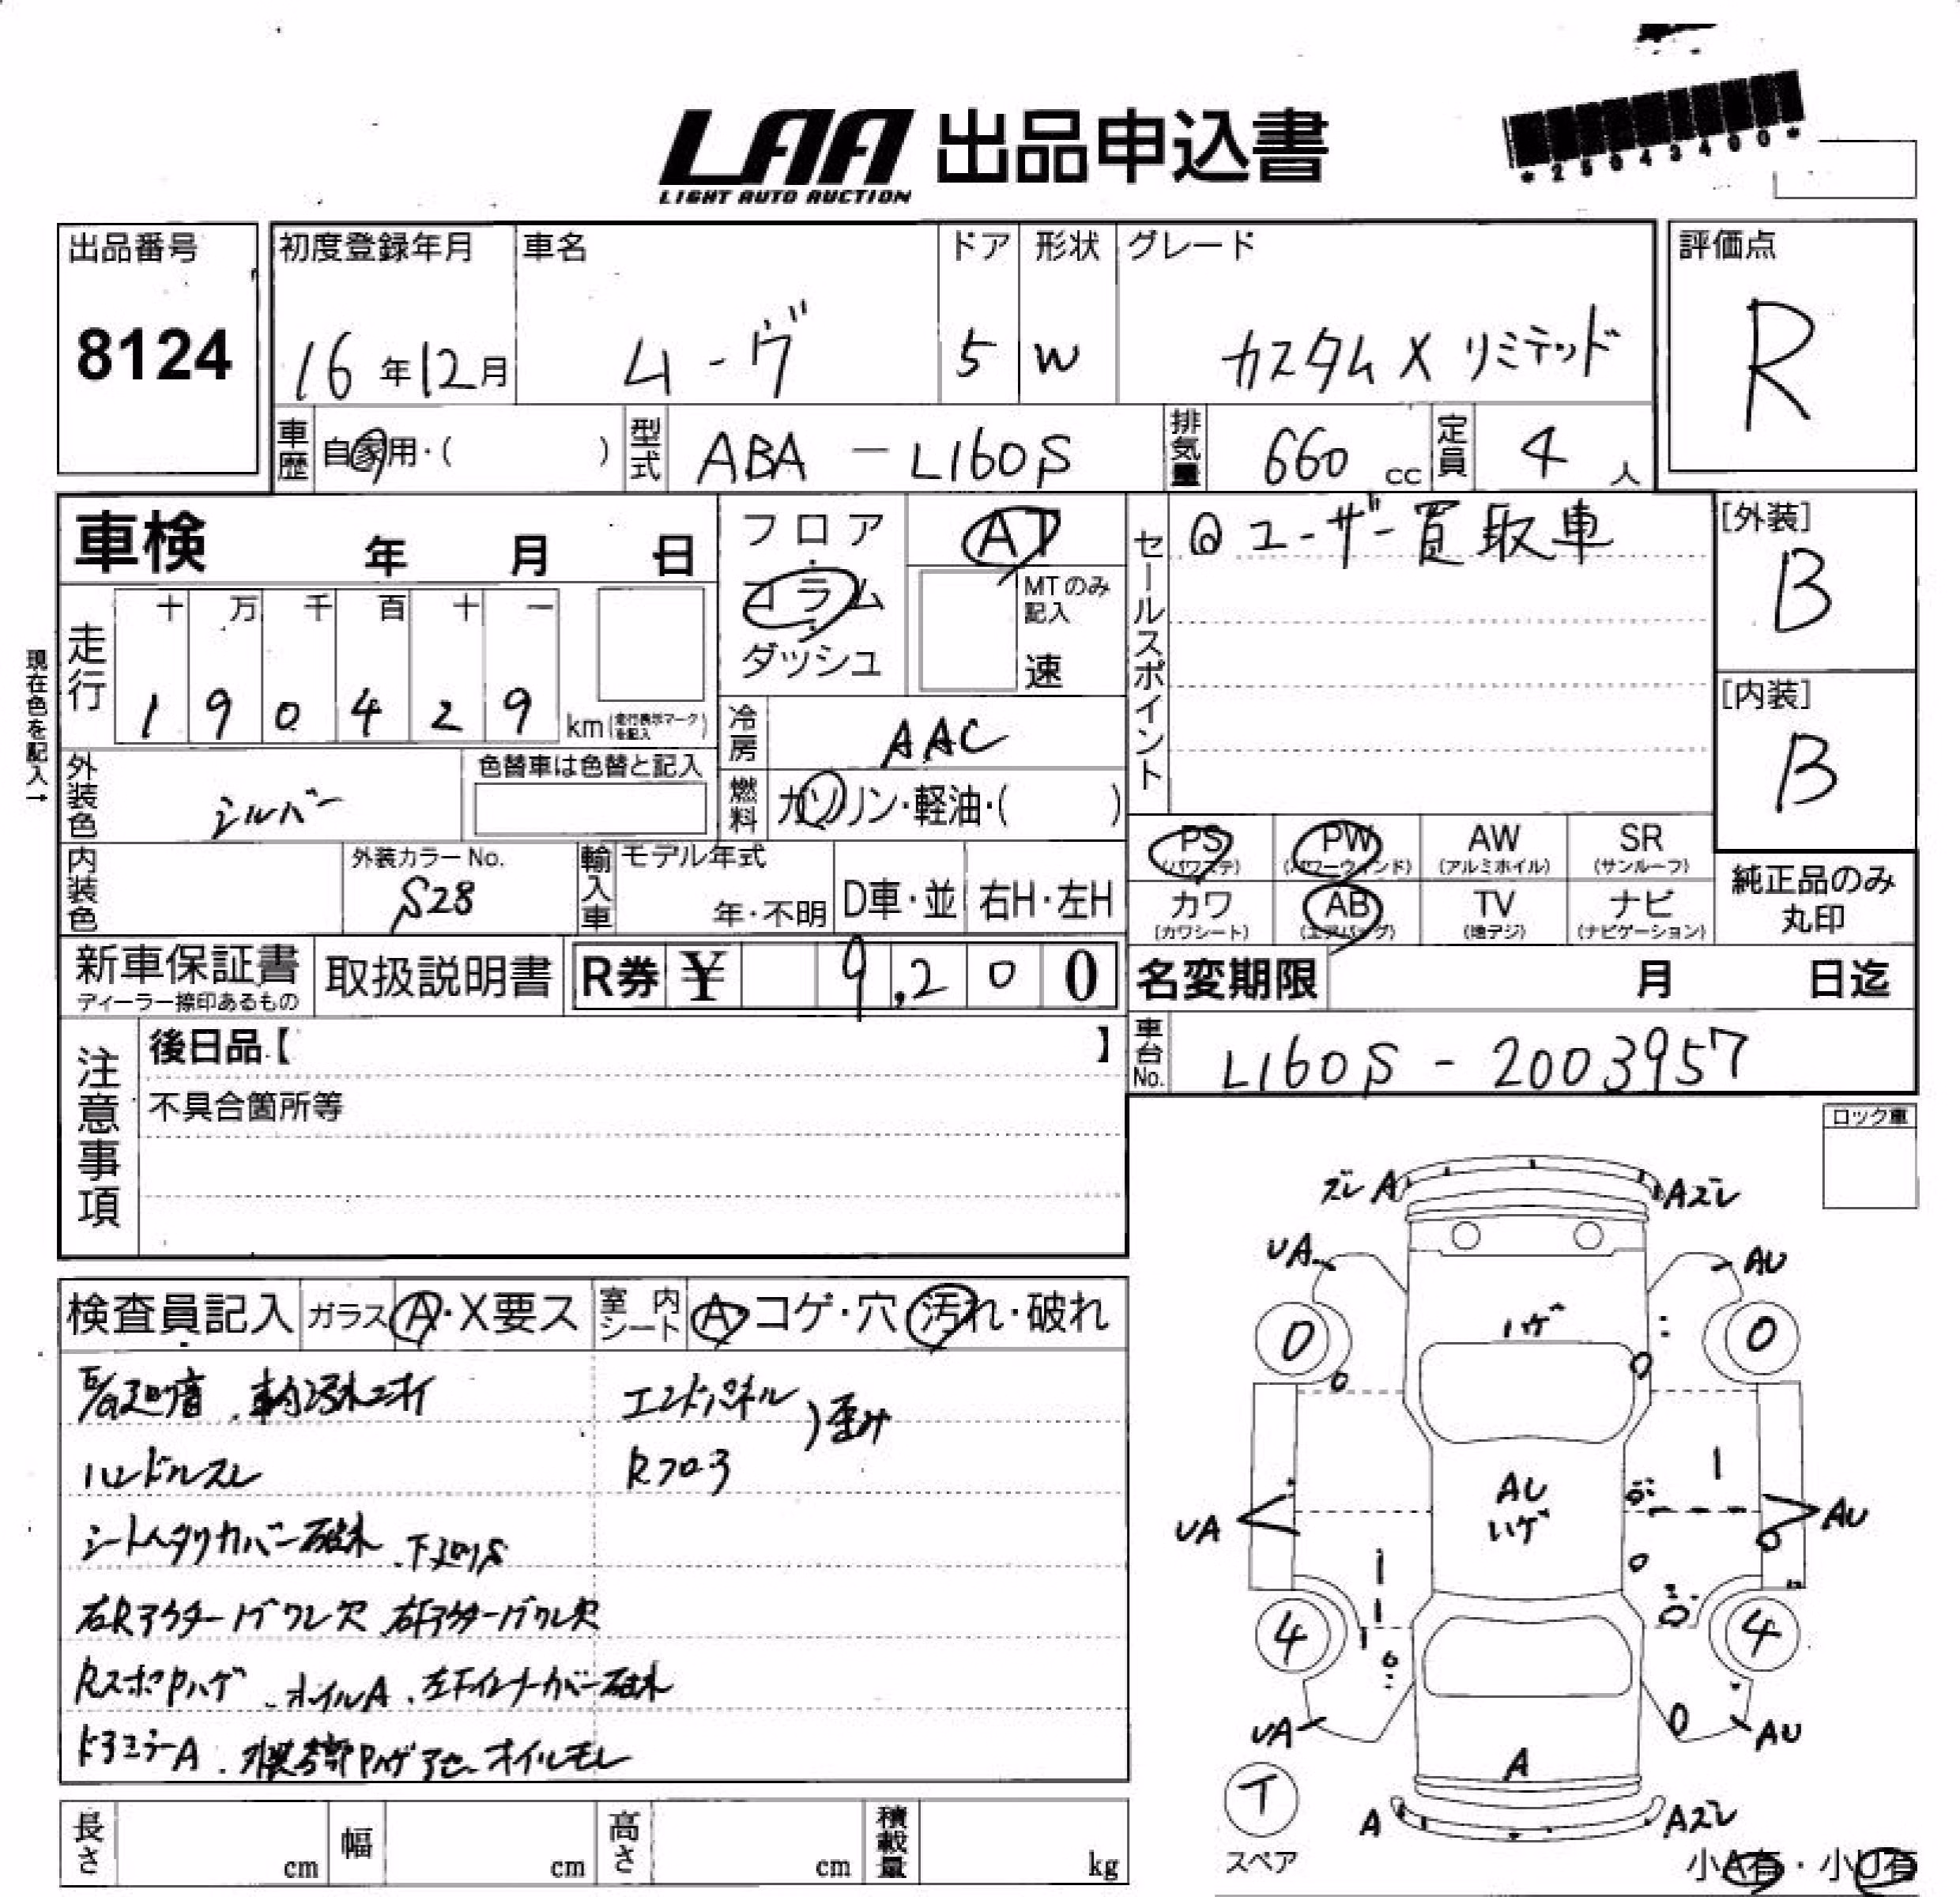 LAA 出品申込書
LIGHT AUTO AUCTION
*25043400*
出品番号 初度登録年月 車名 ドア 形状 グレード 評価点
8124 16年12月 ムーヴ 5 W カスタム X リミテッド R
車歴 自家用・( ) 型式 ABA - L160S 排気量 660 cc 定員 4 人
車検 年 月 日 フロア・コラム・ダッシュ AT
MTのみ記入 速
セールスポイント ◎ユーザー買取車
[外装] B
[内装] B
現在色を記入→
走行 十 万 千 百 十 一
1 9 0 4 2 9 km (走行表示マークを記入)
冷房 AAC
外装色 シルバー 色替車は色替と記入
燃料 ガソリン・軽油・( )
PS (パワステ) PW (パワーウィンド) AW (アルミホイル) SR (サンルーフ)
カワ (カワシート) AB (エアバッグ) TV (地デジ) ナビ (ナビゲーション)
純正品のみ丸印
内装色 外装カラーNo. S28 輸入車 モデル年式 年・不明 D車・並 右H・左H
新車保証書 ディーラー捺印あるもの 取扱説明書 R券 ¥ 9,200
名変期限 月 日迄
車台No. L160S - 2003957
注意事項
後日品【 】
不具合箇所等
ロック車
検査員記入 ガラス A・X要ス 室内シート A・コゲ・穴 汚れ・破れ
車内汚れニオイ エンドパネル
)歪み
ハンドルスレ Rフロア
シートヘタリカバー破れ 下廻りS
右Rアウターハゲワレ欠
RスポPハゲ ホイルA 破れ
ドアミラーA Pハゲアセ オイルモレ
ズレ A Aズレ
UA AU
0 ハゲ 0
AU
ハゲ
UA AU
4 4
UA AU
A
T
スペア
A Aズレ
小A有・小U有
長さ cm 幅 cm 高さ cm 積載量 kg